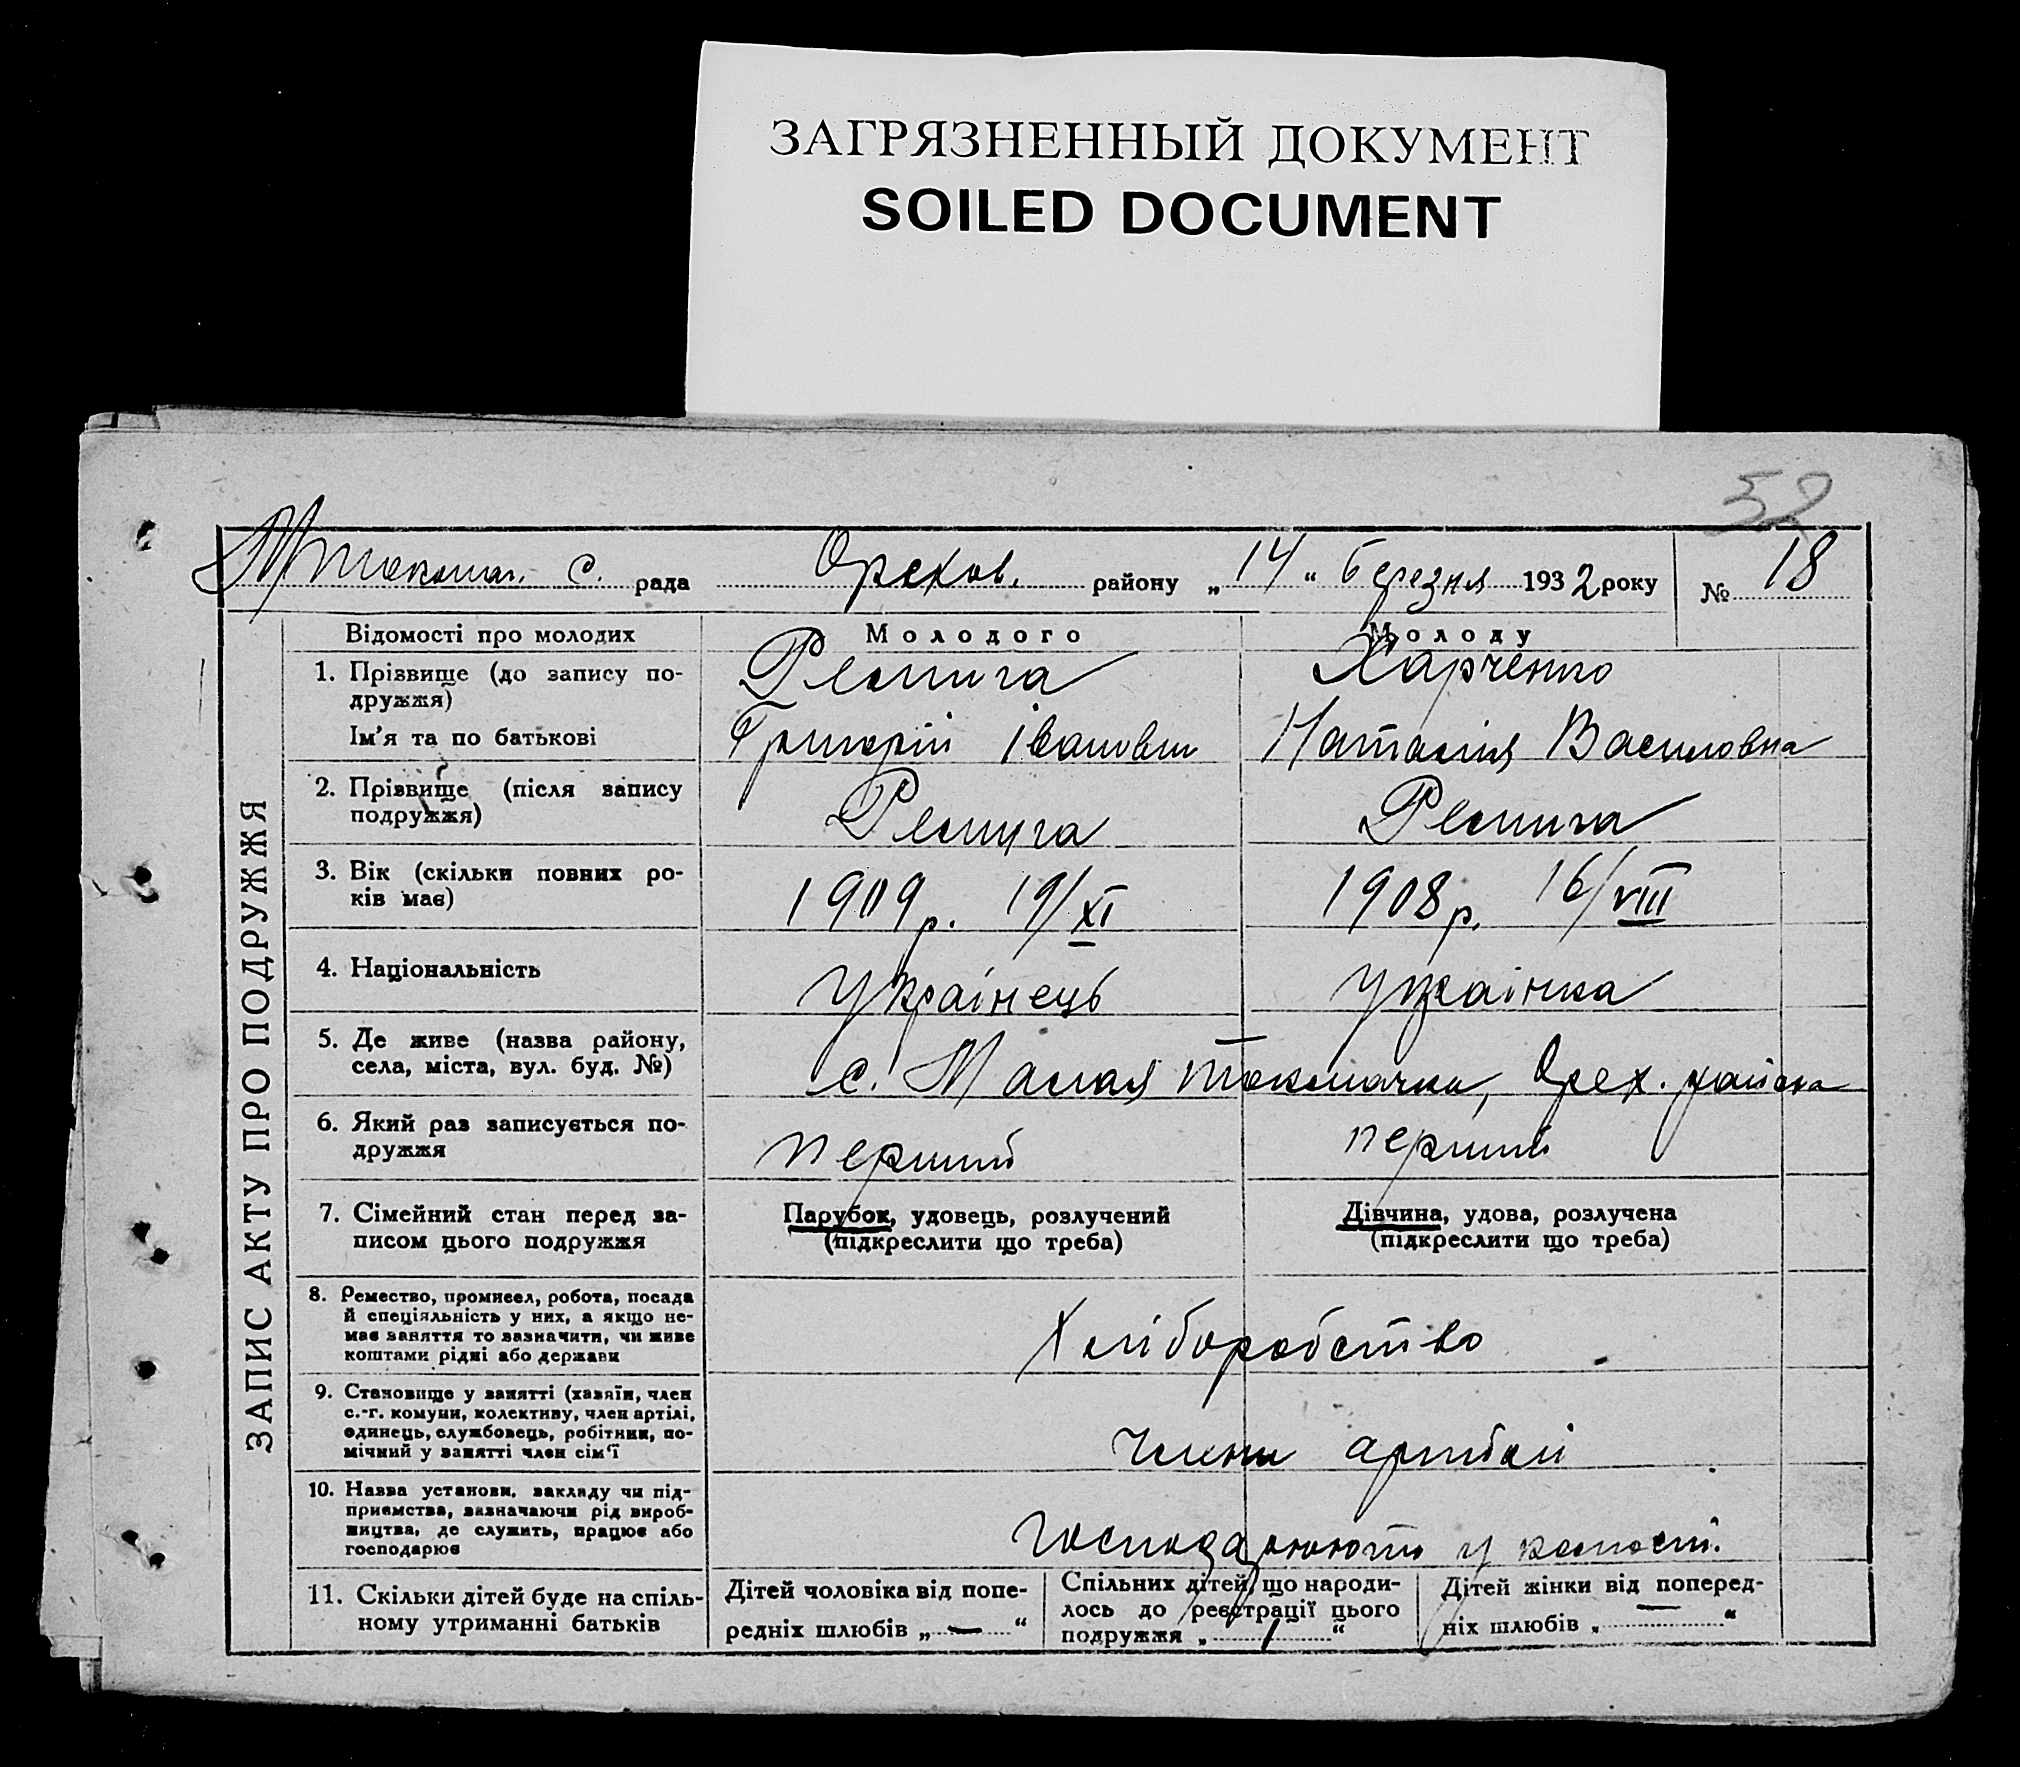 ЗАГРЯЗНЕННЫЙ ДОКУМЕНТ
SOILED DOCUMENT
52
с. рада Орехов. району „14“ березня 1932 року № 18
ЗАПИС АКТУ ПРО ПОДРУЖЖЯ
Відомості про молодих Молодого Молоду
1. Прізвище (до запису по-
дружжя)
Харченко
Ім'я та по батькові Григорій Іванович Наталія Василовна
2. Прізвище (після запису
подружжя)
3. Вік (скільки повних ро-
ків має)
1909 р. 19/XI 1908 р. 16/VIII
4. Національність Українець Українка
5. Де живе (назва району,
села, міста, вул. буд. №)
с. Малая Токмачка, Орех. района
6. Який раз записується по-
дружжя
перший перший
7. Сімейний стан перед за-
писом цього подружжя
Парубок, удовець, розлучений
(підкреслити що треба)
Дівчина, удова, розлучена
(підкреслити що треба)
8. Ремество, промисел, робота, посада
й спеціяльність у них, а якщо не-
має заняття то зазначити, чи живе
коштами рідні або держави
Хліборобство
9. Становище у занятті (хазяїн, член
с.-г. комуни, колективу, член артілі,
одинець, службовець, робітник, по-
мічний у занятті член сім'ї
члени артілі
10. Назва установи, закладу чи під-
приємства, зазначаючи рід вироб-
ництва, де служить, працює або
господарює
Господарюють у
11. Скільки дітей буде на спіль-
ному утриманні батьків
Дітей чоловіка від попе-
редніх шлюбів „ — “
Спільних дітей, що народи-
лось до реєстрації цього
подружжя „ 1 “
Дітей жінки від поперед-
ніх шлюбів „ — “